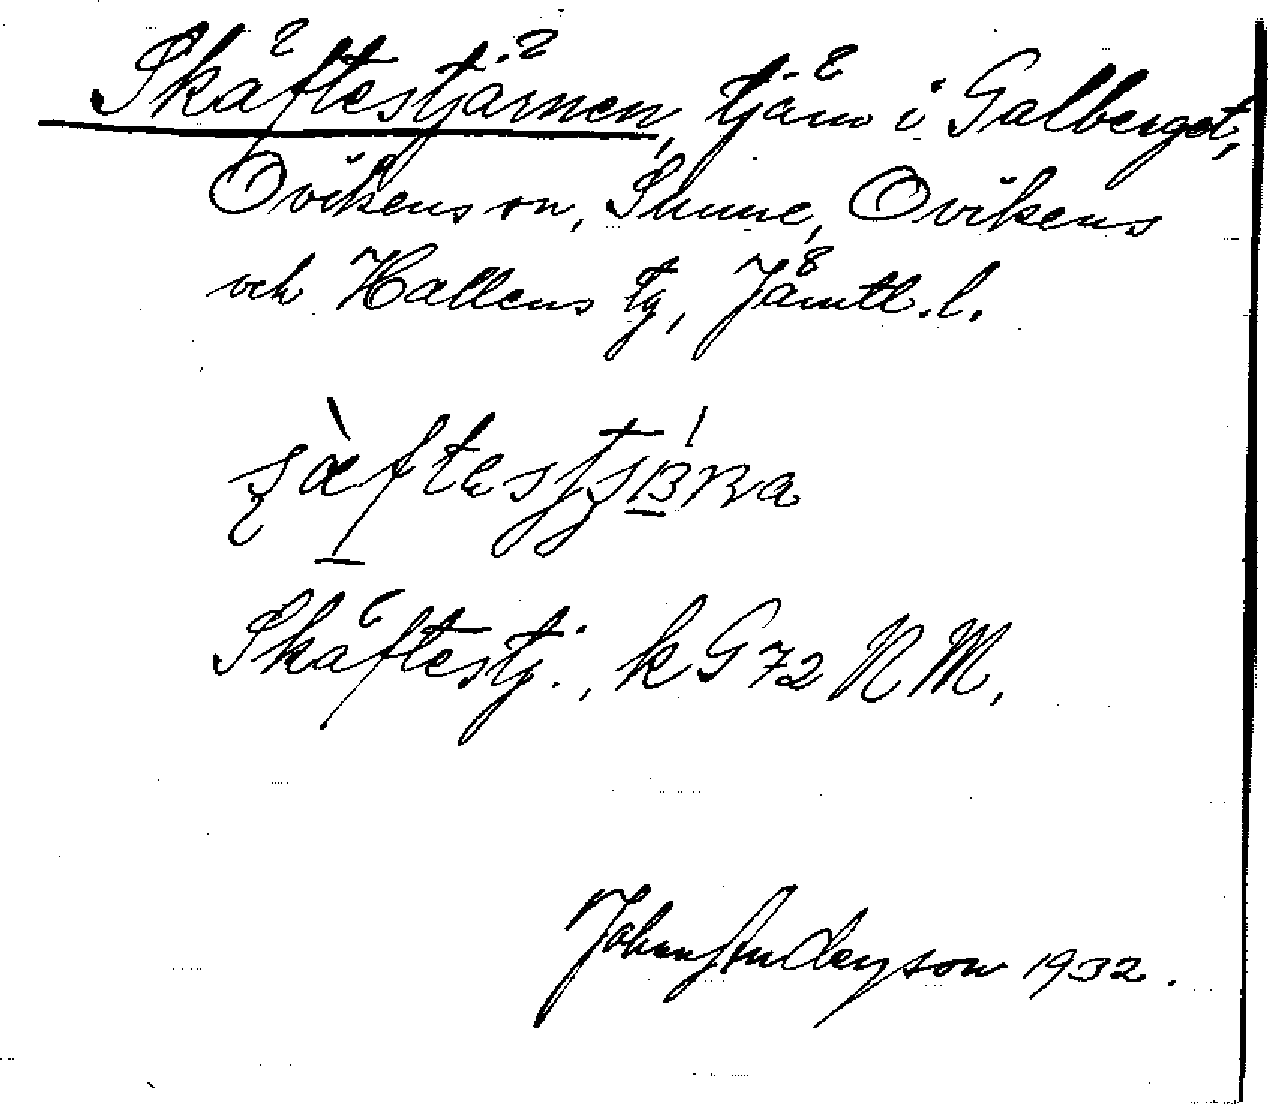 Skäftestjärnen, tjärn i Galberget,
Ovikens sn, Sunne, Ovikens
och Hallens tg, Jämtl. l.
Skäftestj., k G 72 NM,
John Anderson 1932.